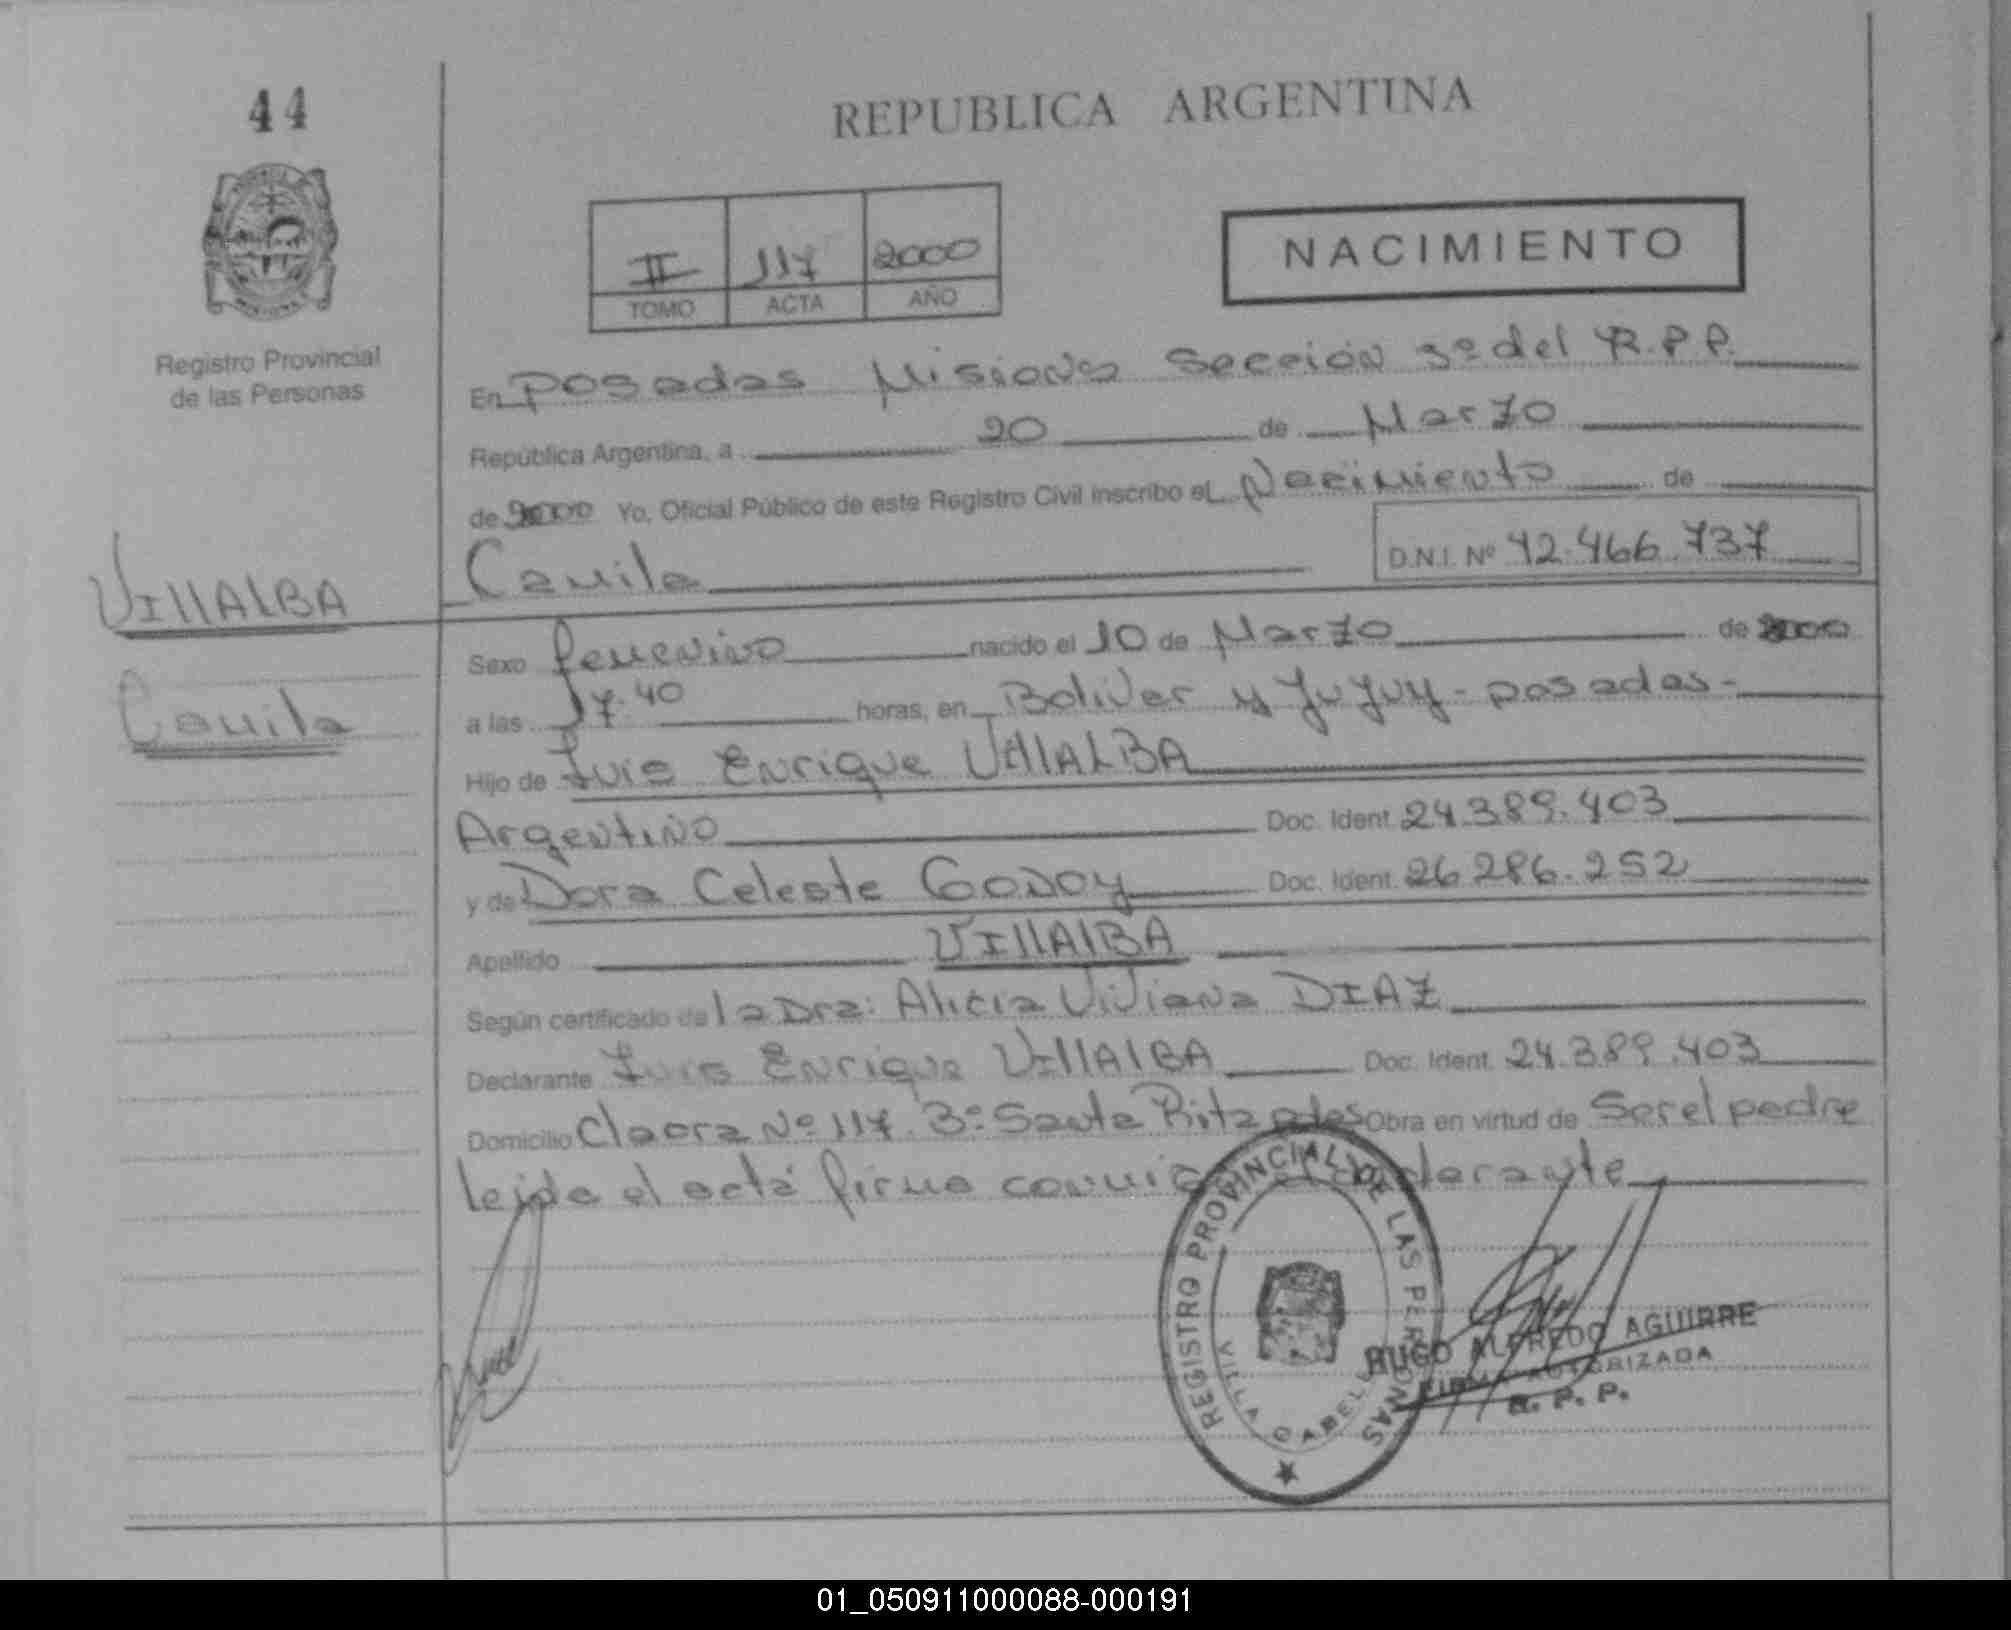 44
REPUBLICA ARGENTINA
II 117 2000
TOMO ACTA AÑO
NACIMIENTO
Registro Provincial
de las Personas
En Posadas Misiones Sección 3º del R.P.P.
República Argentina, a 20 de Marzo
de 2000 Yo, Oficial Público de este Registro Civil inscribo el Nacimiento de
Camila D.N.I. Nº 42.466.737
VIllAlBA
Camila
Sexo femenino nacido el 10 de Marzo de 2000
a las 17.40 horas, en Bolivar y Jujuy - posadas -
Hijo de Luis Enrique VIllALBA
Argentino Doc. Ident. 24.389.403
y de Dora Celeste GODOY Doc. Ident. 26.286.252
Apellido VIllAlBA
Según certificado de la Dra: Alicia Viviana DIAZ
Declarante Luis Enrique VIllAlBA Doc. Ident. 24.389.403
Domicilio Nº 117 Bº Santa Rita Obra en virtud de Ser el padre
leida el acta firma conmigo el declarante
REGISTRO PROVINCIAL DE LAS PERSONAS
VILLA CABELLO
HUGO ALFREDO AGUIRRE
FIRMA AUTORIZADA
R. P. P.
01_050911000088-000191